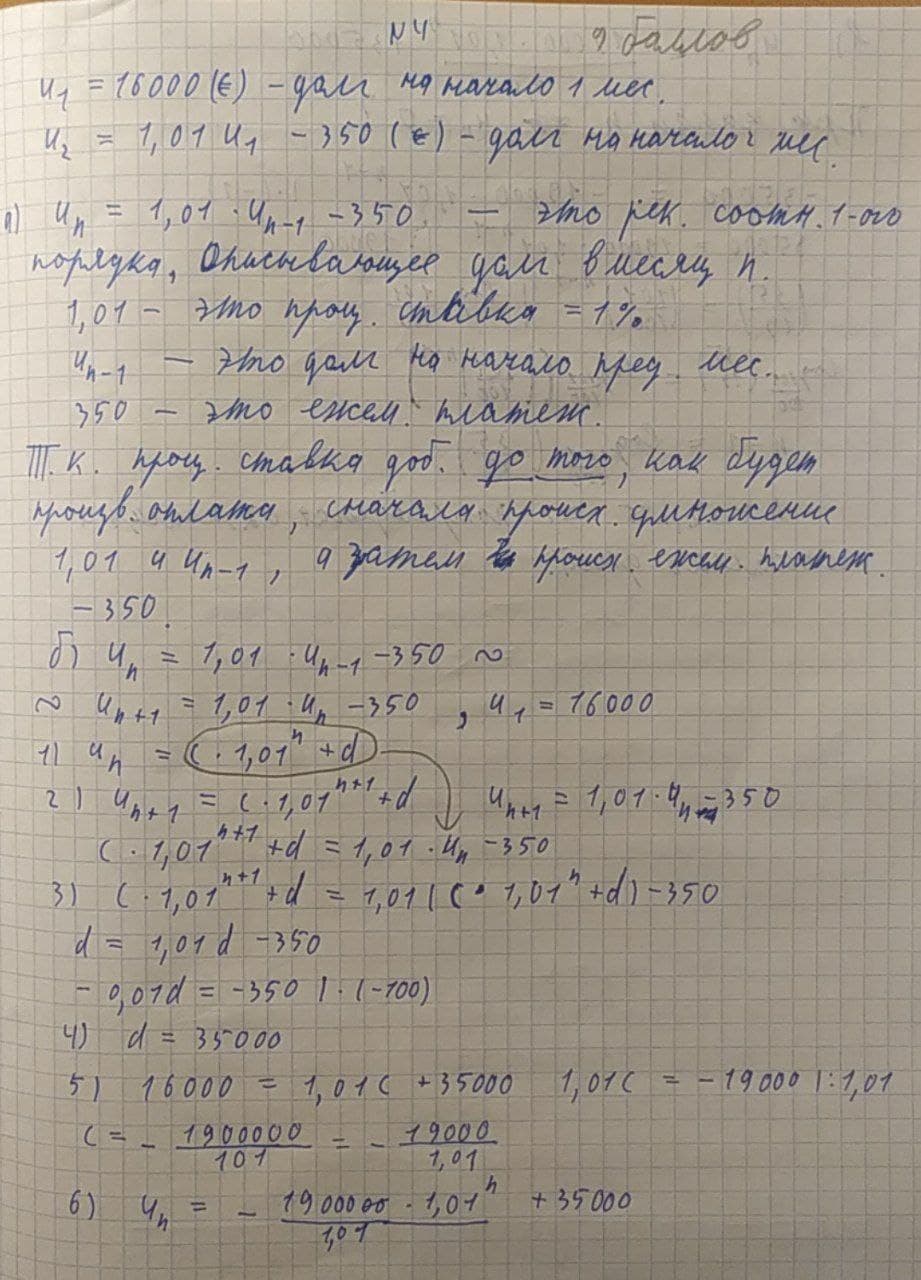 N4 9 баллов
u₁ = 16000 (€) – долг на начало 1 мес.
u₂ = 1,01 u₁ – 350 (€) – долг на начало 2 мес
а) uₙ = 1,01 · uₙ₋₁ – 350 — это рек. соотн. 1-ого
порядка, описывающее долг в месяц n.
1,01 – это проц. ставка = 1%
uₙ₋₁ — это долг на начало пред. мес.
350 – это ежем. платеж.
Т.к. проц. ставка доб. до того, как будет
произв. оплата, сначала происх. умножение
1,01 и uₙ₋₁, а затем происх. ежем. платеж.
– 350.
б) uₙ = 1,01 · uₙ₋₁ – 350 ~
~ uₙ₊₁ = 1,01 · uₙ – 350 , u₁ = 16000
1) uₙ = c · 1,01ⁿ + d
2) uₙ₊₁ = c · 1,01ⁿ⁺¹ + d uₙ₊₁ = 1,01 · uₙ – 350
c · 1,01ⁿ⁺¹ + d = 1,01 · uₙ – 350
3) c · 1,01ⁿ⁺¹ + d = 1,01 (c · 1,01ⁿ + d) – 350
d = 1,01 d – 350
– 0,01d = –350 | · (–100)
4) d = 35000
5) 16000 = 1,01c + 35000 1,01c = – 19000 | : 1,01
c = – 1900000/101 = – 19000/1,01
6) uₙ = – 1900000 · 1,01ⁿ/1,01 + 35000